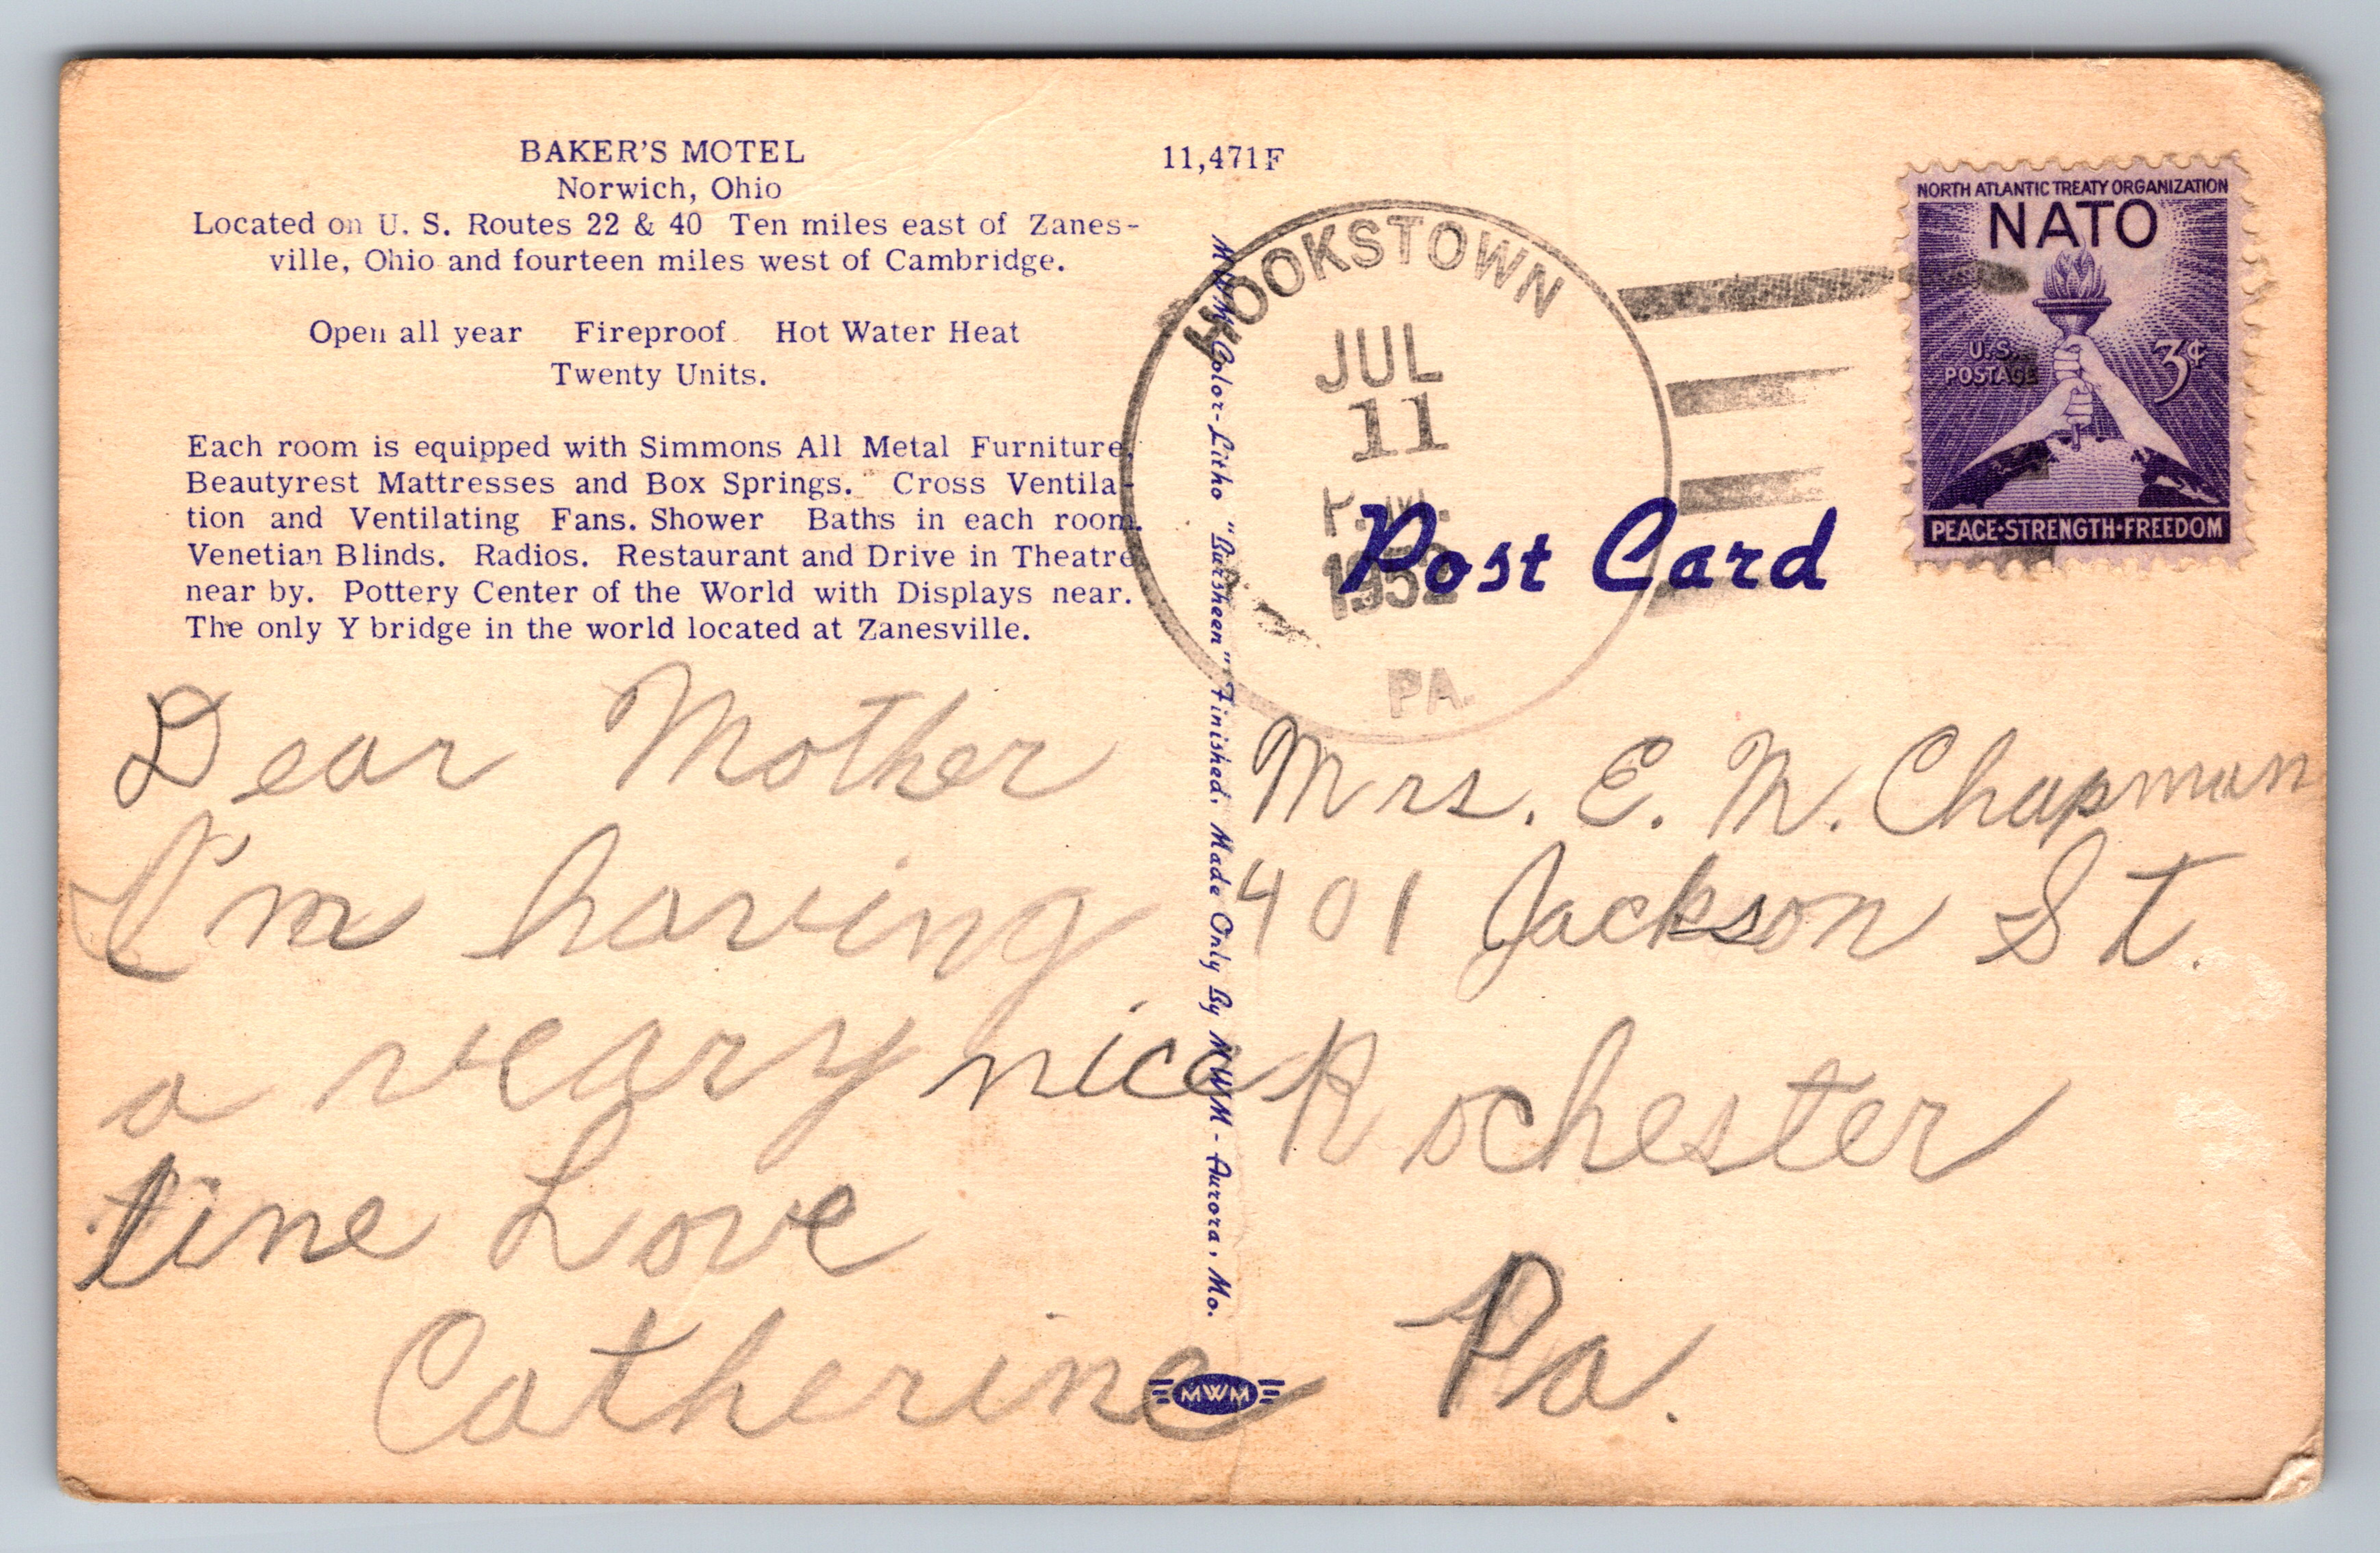 BAKER'S MOTEL
Norwich, Ohio
Located on U. S. Routes 22 & 40 Ten miles east of Zanes-
ville, Ohio and fourteen miles west of Cambridge.
Open all year Fireproof Hot Water Heat
Twenty Units.
Each room is equipped with Simmons All Metal Furniture,
Beautyrest Mattresses and Box Springs. Cross Ventila-
tion and Ventilating Fans. Shower Baths in each room.
Venetian Blinds. Radios. Restaurant and Drive in Theatre
near by. Pottery Center of the World with Displays near.
The only Y bridge in the world located at Zanesville.
Dear Mother
I'm having
a veary nice
tine Love
Catherine
11,471F
MWM Color-Litho "Bursheen" Finished, Made Only By MWM - Aurora, Mo.
MWM
HOOKSTOWN
JUL
11
P.M.
1952
PA.
Post Card
NORTH ATLANTIC TREATY ORGANIZATION
NATO
U.S.
POSTAGE
3¢
PEACE·STRENGTH·FREEDOM
Mrs. E. M. Chapman
401 Jackson St.
Rochester
Pa.